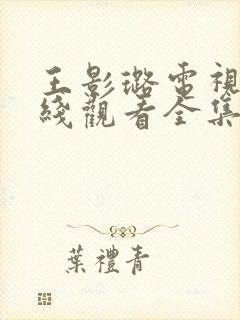 王影璐電視
綫觀看全集
葉禮青